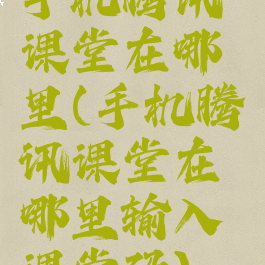 手机腾讯
课堂在哪
里(手机腾
讯课堂在
哪里输入
课堂码)